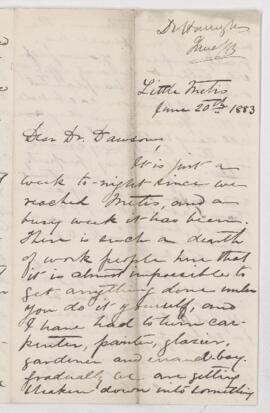 Dr Harrington
June /83
Little Metis
June 20th 1883
Dear Dr. Dawson,
It is just a
week to-night since we
reached Metis, and a
busy week it has been.
There is such a dearth
of work people here that
it is almost impossible to
get anything done unless
you do it yourself, and
I have had to turn car-
penter, painter, glazier,
gardener and errand boy.
Gradually we are getting
shaken down into something